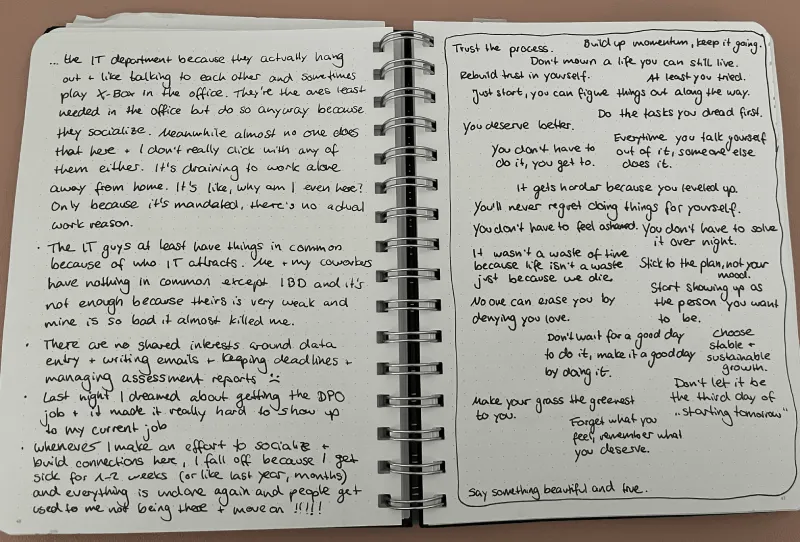 ... the IT department because they actually hang
out + like talking to each other and sometimes
play X-Box in the office. They're the ones least
needed in the office but do so anyway because
they socialize. Meanwhile almost no one does
that here + I don't really click with any of
them either. It's draining to work alone
away from home. It's like, why am I even here?
Only because it's mandated, there's no actual
work reason.
· The IT guys at least have things in common
because of who IT attracts. Me + my coworkers
have nothing in common except IBD and it's
not enough because theirs is very weak and
mine is so bad it almost killed me.
· There are no shared interests around data
entry + writing emails + keeping deadlines +
managing assessment reports :(
· Last night I dreamed about getting the DPO
job + it made it really hard to show up
to my current job
· whenever I make an effort to socialize +
build connections here, I fall off because I get
sick for 1-2 weeks (or like last year, months)
and everything is undone again and people get
used to me not being there + move on !!!!!
Trust the process.
Build up momentum, keep it going.
Don't mourn a life you can still live.
Rebuild trust in yourself.
At least you tried.
Just start, you can figure things out along the way.
Do the tasks you dread first.
You deserve better.
Everytime you talk yourself
out of it, someone else
does it.
You don't have to
do it, you get to.
It gets harder because you leveled up.
You'll never regret doing things for yourself.
You don't have to feel ashamed.
You don't have to solve
it over night.
It wasn't a waste of time
because life isn't a waste
just because we die.
Stick to the plan, not your
mood.
Start showing up as
the person you want
to be.
No one can erase you by
denying you love.
Don't wait for a good day
to do it, make it a good day
by doing it.
choose
stable +
sustainable
growth.
Don't let it be
the third day of
"starting tomorrow"
Make your grass the greenest
to you.
Forget what you
feel, remember what
you deserve.
Say something beautiful and true.